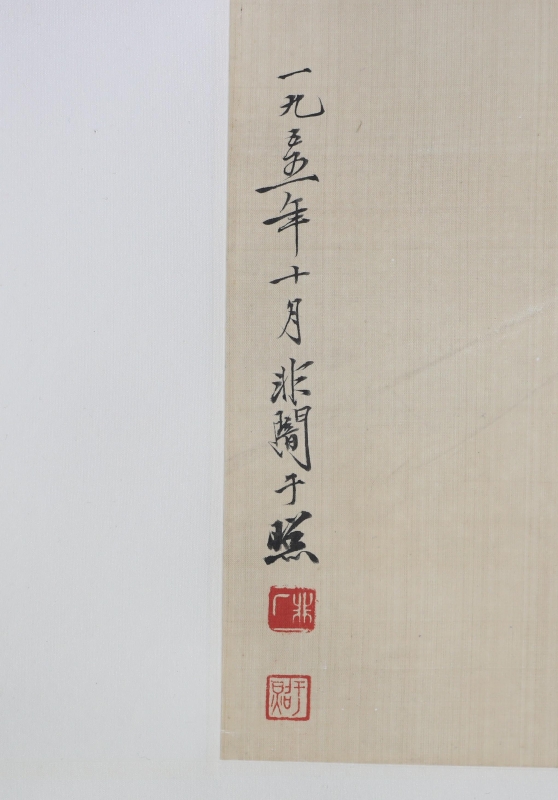 一九五五年十月非闇于照
非厂
于照